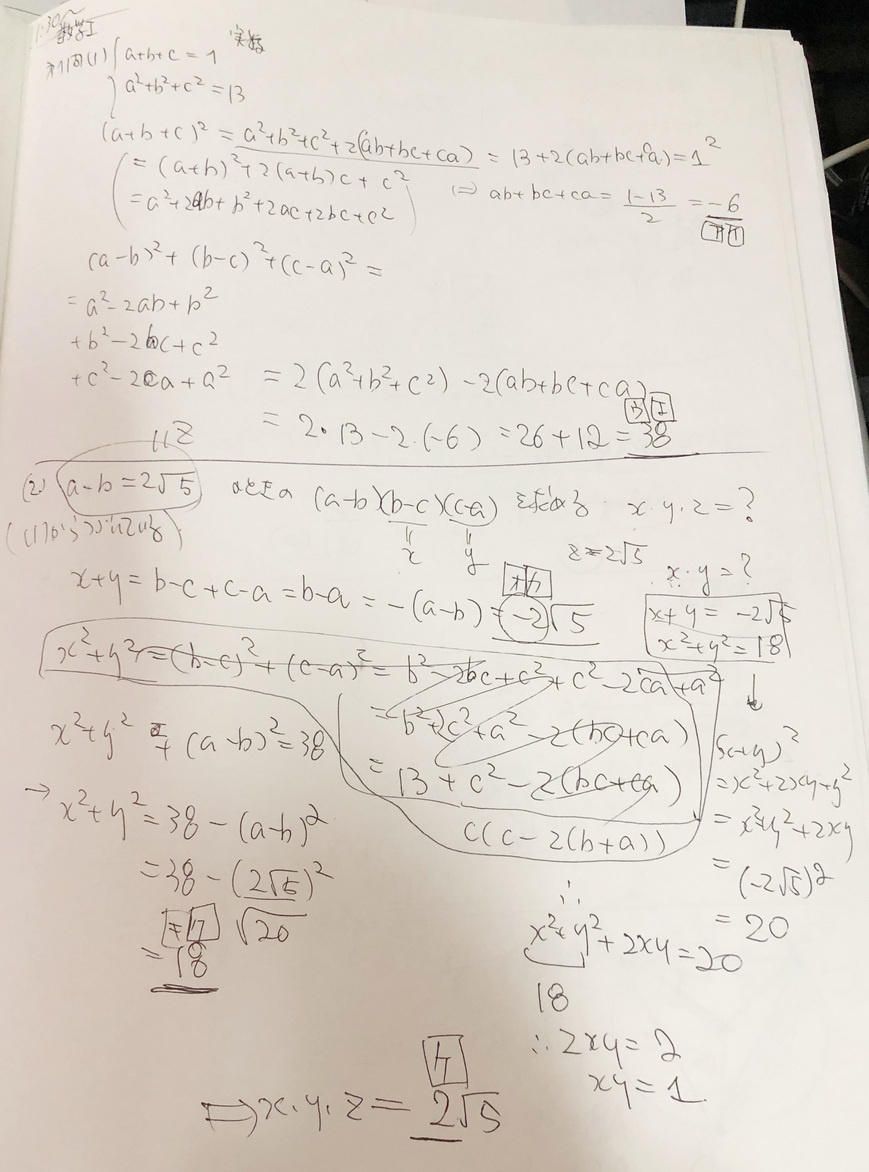 1:30~
数学I
(1) { a+b+c = 1
a²+b²+c² = 13
(a+b+c)² = a²+b²+c²+2(ab+bc+ca) = 13+2(ab+bc+ca) = 1²
( = (a+b)²+2(a+b)c+c²
= a²+2ab+b²+2ac+2bc+c² )
⇔ ab+bc+ca = (1-13)/2 = -6
アイ
(a-b)²+(b-c)²+(c-a)² =
= a²-2ab+b²
+b²-2bc+c²
+c²-2ca+a² = 2(a²+b²+c²)-2(ab+bc+ca)
ウ エ
= 2・13-2・(-6) = 26+12 = 38
z
(2) a-b=2√5 のとき の (a-b)(b-c)(c-a) を求める x・y・z=?
x y z=2√5
x・y=?
オカ
x+y = b-c+c-a = b-a = -(a-b) = -2√5
x+y = -2√5
x²+y² = 18
x²+y² = (b-c)²+(c-a)² = b²-2bc+c²+c²-2ca+a²
= b²+2c²+a²-2(bc+ca)
= 13+c²-2(bc+ca)
c(c-2(b+a))
x²+y²+(a-b)² = 38
→ x²+y² = 38-(a-b)²
= 38-(2√5)²
√20
キク
= 18
↓
(x+y)²
= x²+2xy+y²
= x²+y²+2xy
= (-2√5)²
= 20
∴
x²+y²+2xy = 20
18
∴ 2xy = 2
xy = 1
ケ
⇒ x・y・z = 2√5